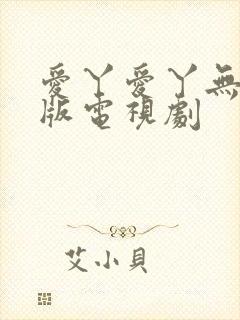 愛丫愛丫無
版電視劇
艾小貝